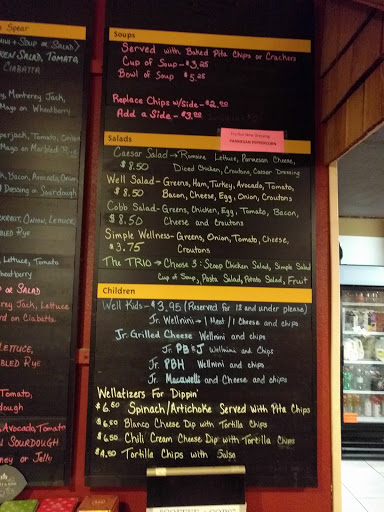 Spear
Soup or Salad
ken Salad, Tomato
Ciabatta
y, Monterey Jack,
Mayo on Wheatberry
perjack, Tomato, Onion
Mayo on Marbled Rye
ch, Bacon, Avocado, Onion
Dressing on Sourdough
Onion, Lettuce,
bled Rye
Lettuce, Tomato
heatberry
or Salad
erey Jack, Lettuce
rd on Ciabatta
Lettuce,
bled Rye
Tomato,
dough
, Avocado, Tomato
n Sourdough
ney or Jelly
Soups
Served with Baked Pita Chips or Crackers
Cup of Soup - $3.25
Bowl of Soup $5.25
Replace Chips w/Side - $2.00
Add a Side - $3.00
Salads
Parmesan Peppercorn
Caesar Salad → Romaine Lettuce, Parmesan Cheese,
$8.50 Diced Chicken, Croutons, Caesar Dressing
Well Salad - Greens, Ham, Turkey, Avocado, Tomato,
$8.50 Bacon, Cheese, Egg, Onion, Croutons
Cobb Salad - Greens, Chicken, Egg, Tomato, Bacon,
$8.50 Cheese and Croutons
Simple Wellness - Greens, Onion, Tomato, Cheese,
$3.75 Croutons
The TRIO → Choose 3: Scoop Chicken Salad, Simple Salad
Cup of Soup, Pasta Salad, Potato Salad, Fruit
Children
Well Kids - $3.95 (Reserved for 12 and under please)
Jr. Wellnini → 1 Meat / 1 Cheese and chips
Jr. Grilled Cheese Wellnini and chips
Jr. PB & J Wellnini and Chips
Jr. PBH Wellnini and chips
Jr. Macawells and Cheese and chips
Wellatizers For Dippin'
$6.50 Spinach/Artichoke Served with Pita Chips
$6.50 Blanco Cheese Dip with Tortilla Chips
$6.50 Chili Cream Cheese Dip with Tortilla Chips
$4.50 Tortilla Chips with Salsa